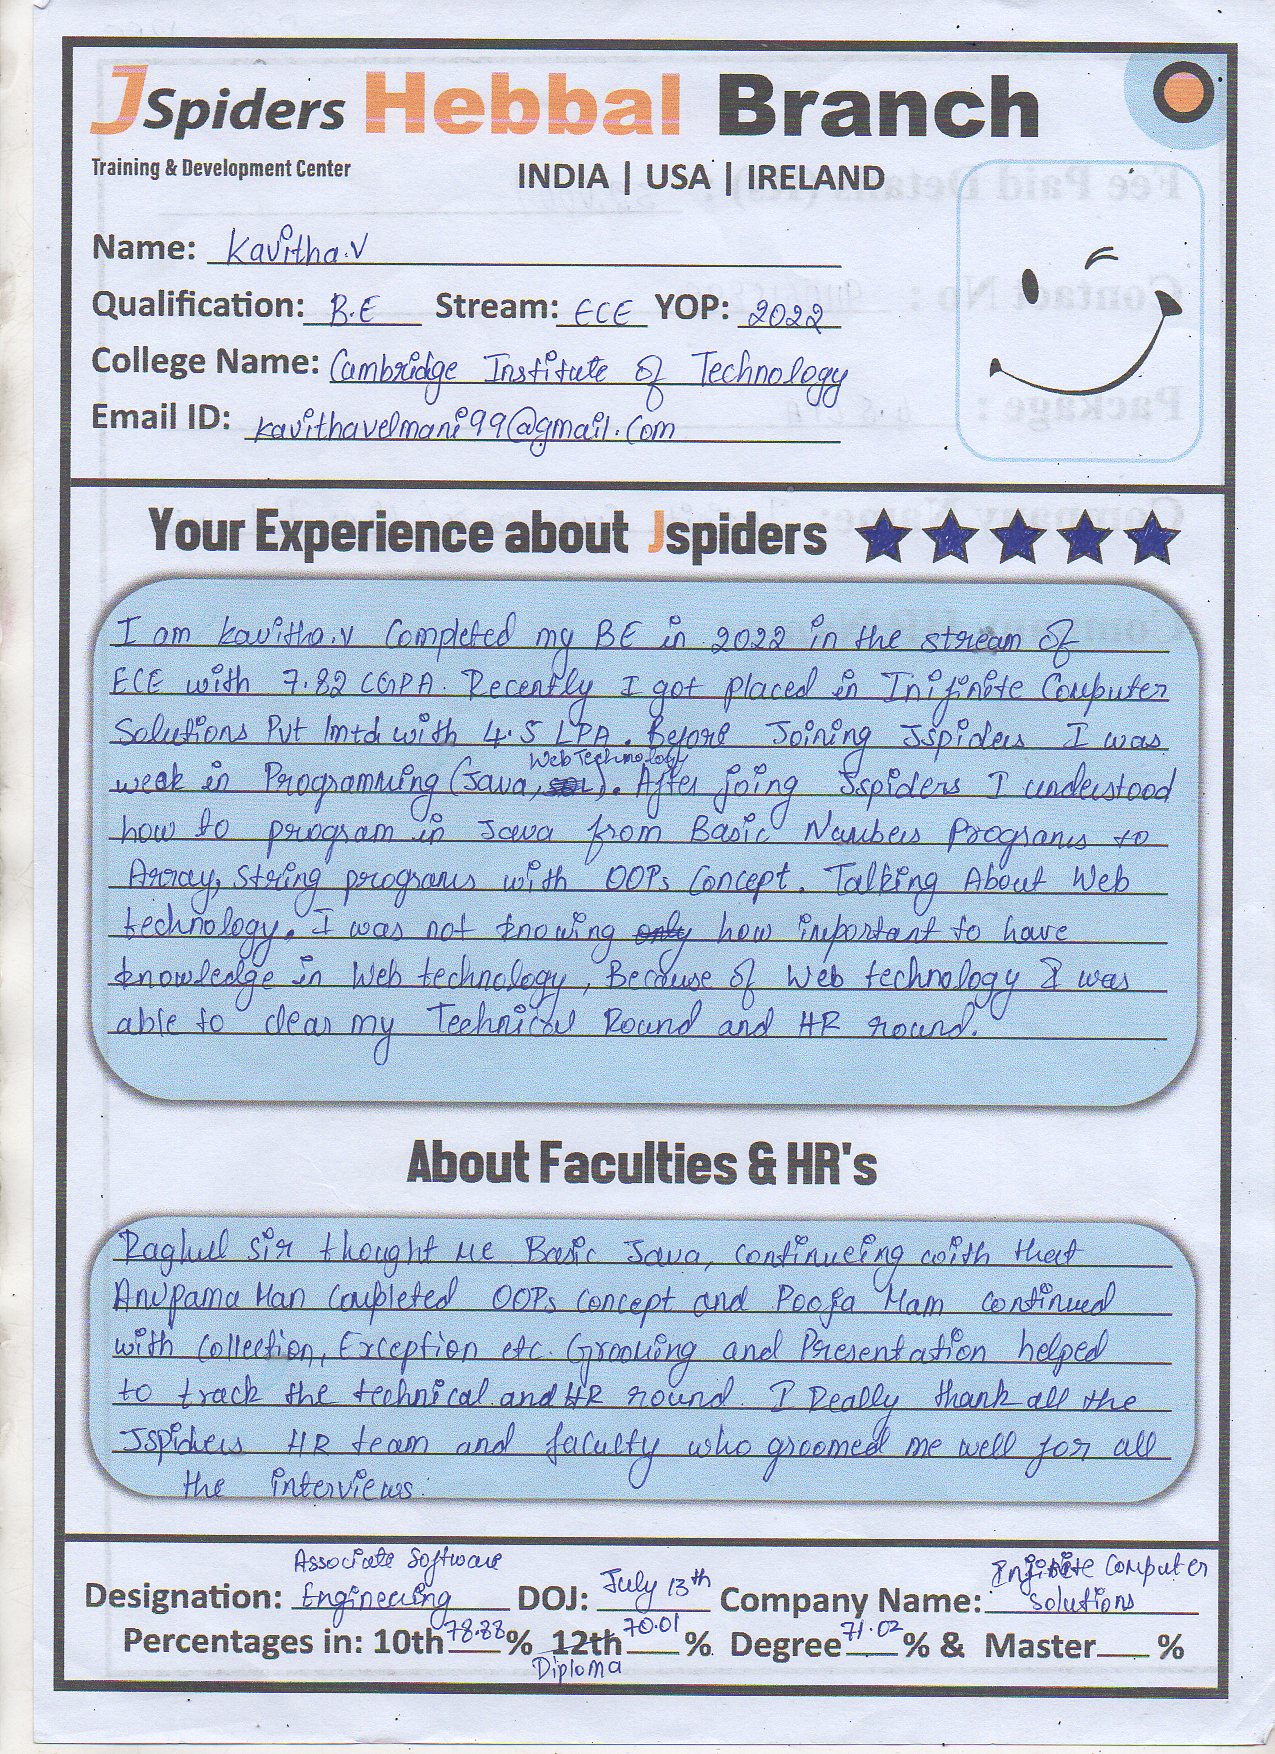 JSpiders Hebbal Branch
Training & Development Center
INDIA | USA | IRELAND
Name: Kavitha.V
Qualification: B.E Stream: ECE YOP: 2022
College Name: Cambridge Institute of Technology
Email ID: kavithavelmani99@gmail.com
Your Experience about Jspiders
I am Kavitha.V Completed my BE in 2022 in the stream of
ECE with 7.82 CGPA. Recently I got placed in Inifinite Computer
Solutions Pvt lmtd with 4.5 LPA. Before Joining Jspiders I was
Web Technology
week in Programming (Java, ). After joing Jspiders I understood
how to program in Java from Basic Numbers Programs to
Array, String programs with OOPs Concept. Talking About Web
technology. I was not knowing only how important to have
knowledge in Web technology, Because of Web technology I was
able to clear my Technical Round and HR round.
About Faculties & HR's
Raghul Sir thought me Basic Java, continueing with that
Anupama Mam Completed OOPs concept and Pooja Mam Continued
with Collection, Exception etc. Grooming and Presentation helped
to track the technical and HR round. I Really thank all the
Jspiders HR team and faculty who groomed me well for all
the interviews.
Associate Software Infinite Computer
Designation: Engineering DOJ: July 13th Company Name: Solutions
Percentages in: 10th 78.88% 12th 70.01% Degree 71.02% & Master %
Diploma